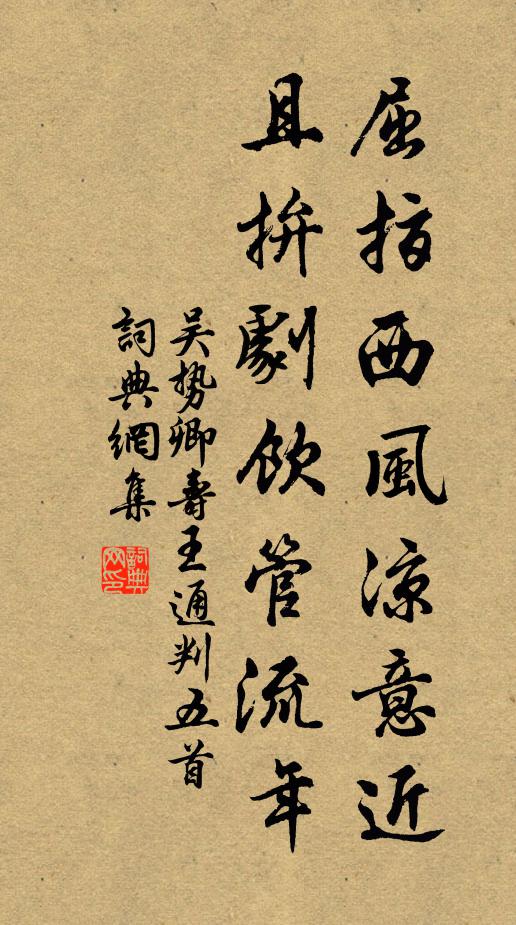 屈指西風涼意近
且拚劇飲管流年
吴势卿壽王通判五首
詞典網集
詞典網印